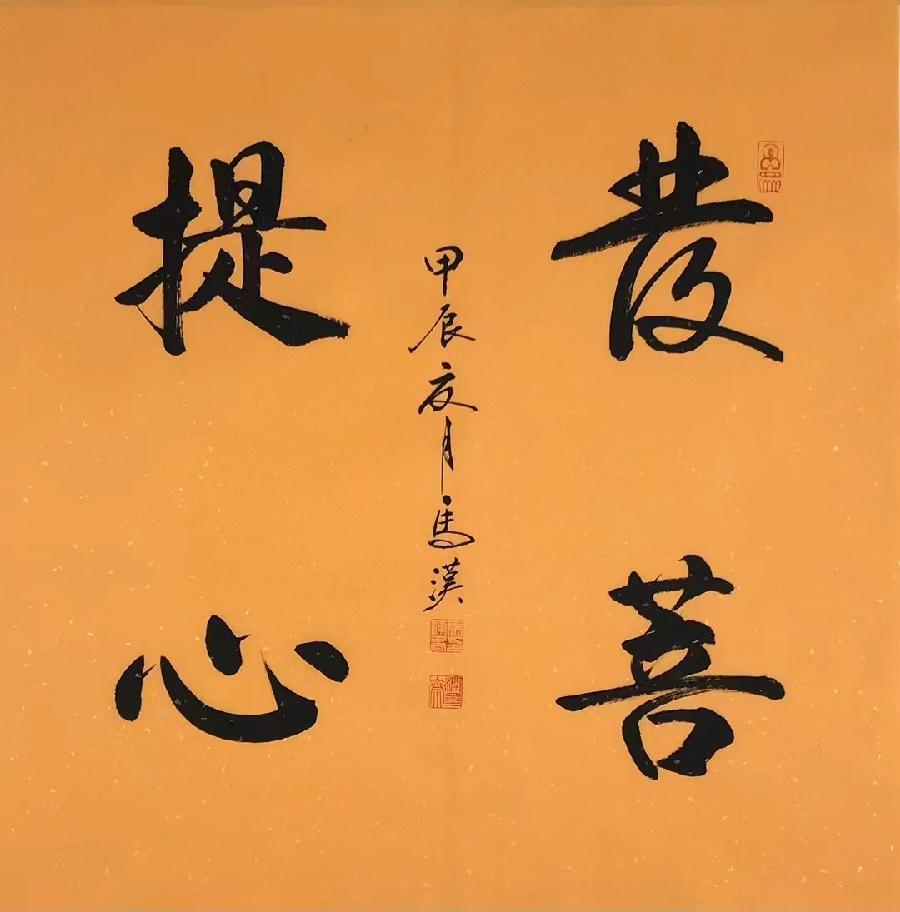 發菩
提心
甲辰夏月馬漢